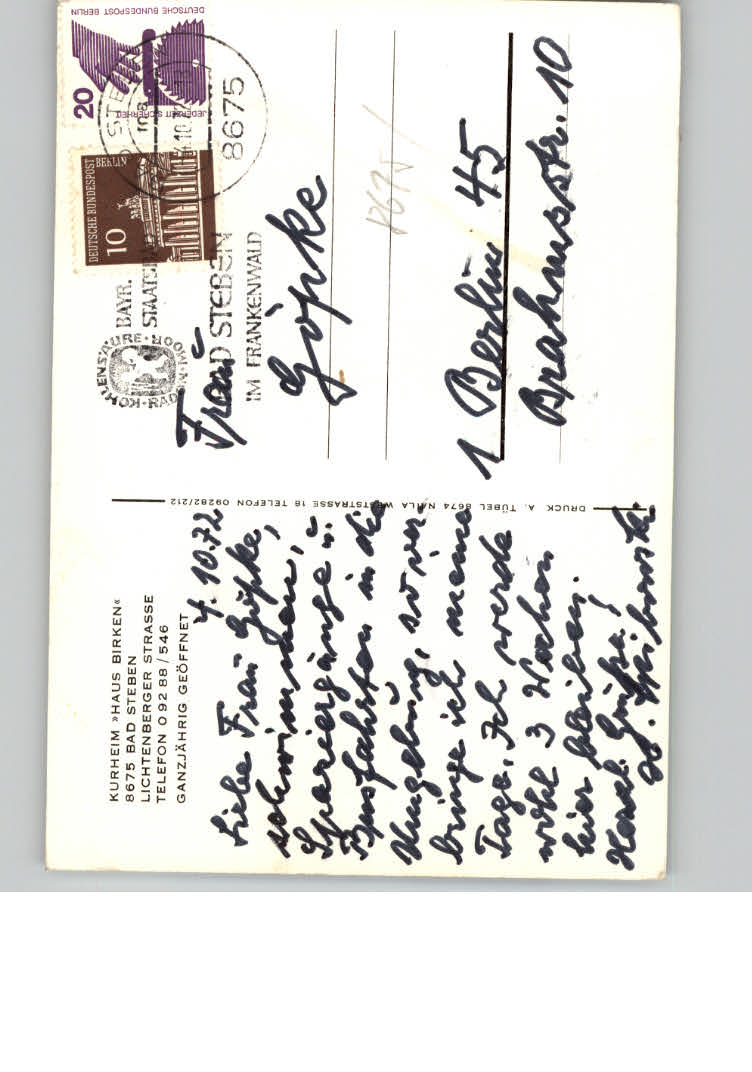 KURHEIM »HAUS BIRKEN«
8675 BAD STEBEN
LICHTENBERGER STRASSE
TELEFON 0 92 88 / 546
GANZJÄHRIG GEÖFFNET
4.10.72
Liebe Frau Göpke,
schwimmen,
Spaziergänge u.
Busfahrten in die
Umgebung, so ver-
bringe ich meine
Tage. Ich werde
wohl 3 Wochen
hier bleiben.
Herzl. Grüße!
DRUCK A. TÜBEL 8674 NAILA WESTSTRASSE 18 TELEFON 09282/212
DEUTSCHE BUNDESPOST BERLIN
JEDERZEIT SICHERHEIT
20
DEUTSCHE BUNDESPOST BERLIN
10
8675
BAYR.
STAATSBAD
BAD STEBEN
IM FRANKENWALD
KOHLENSÄURE · MOOR · RADON
Frau
Göpke
8675
1 Berlin 45
Brahmsstr. 10